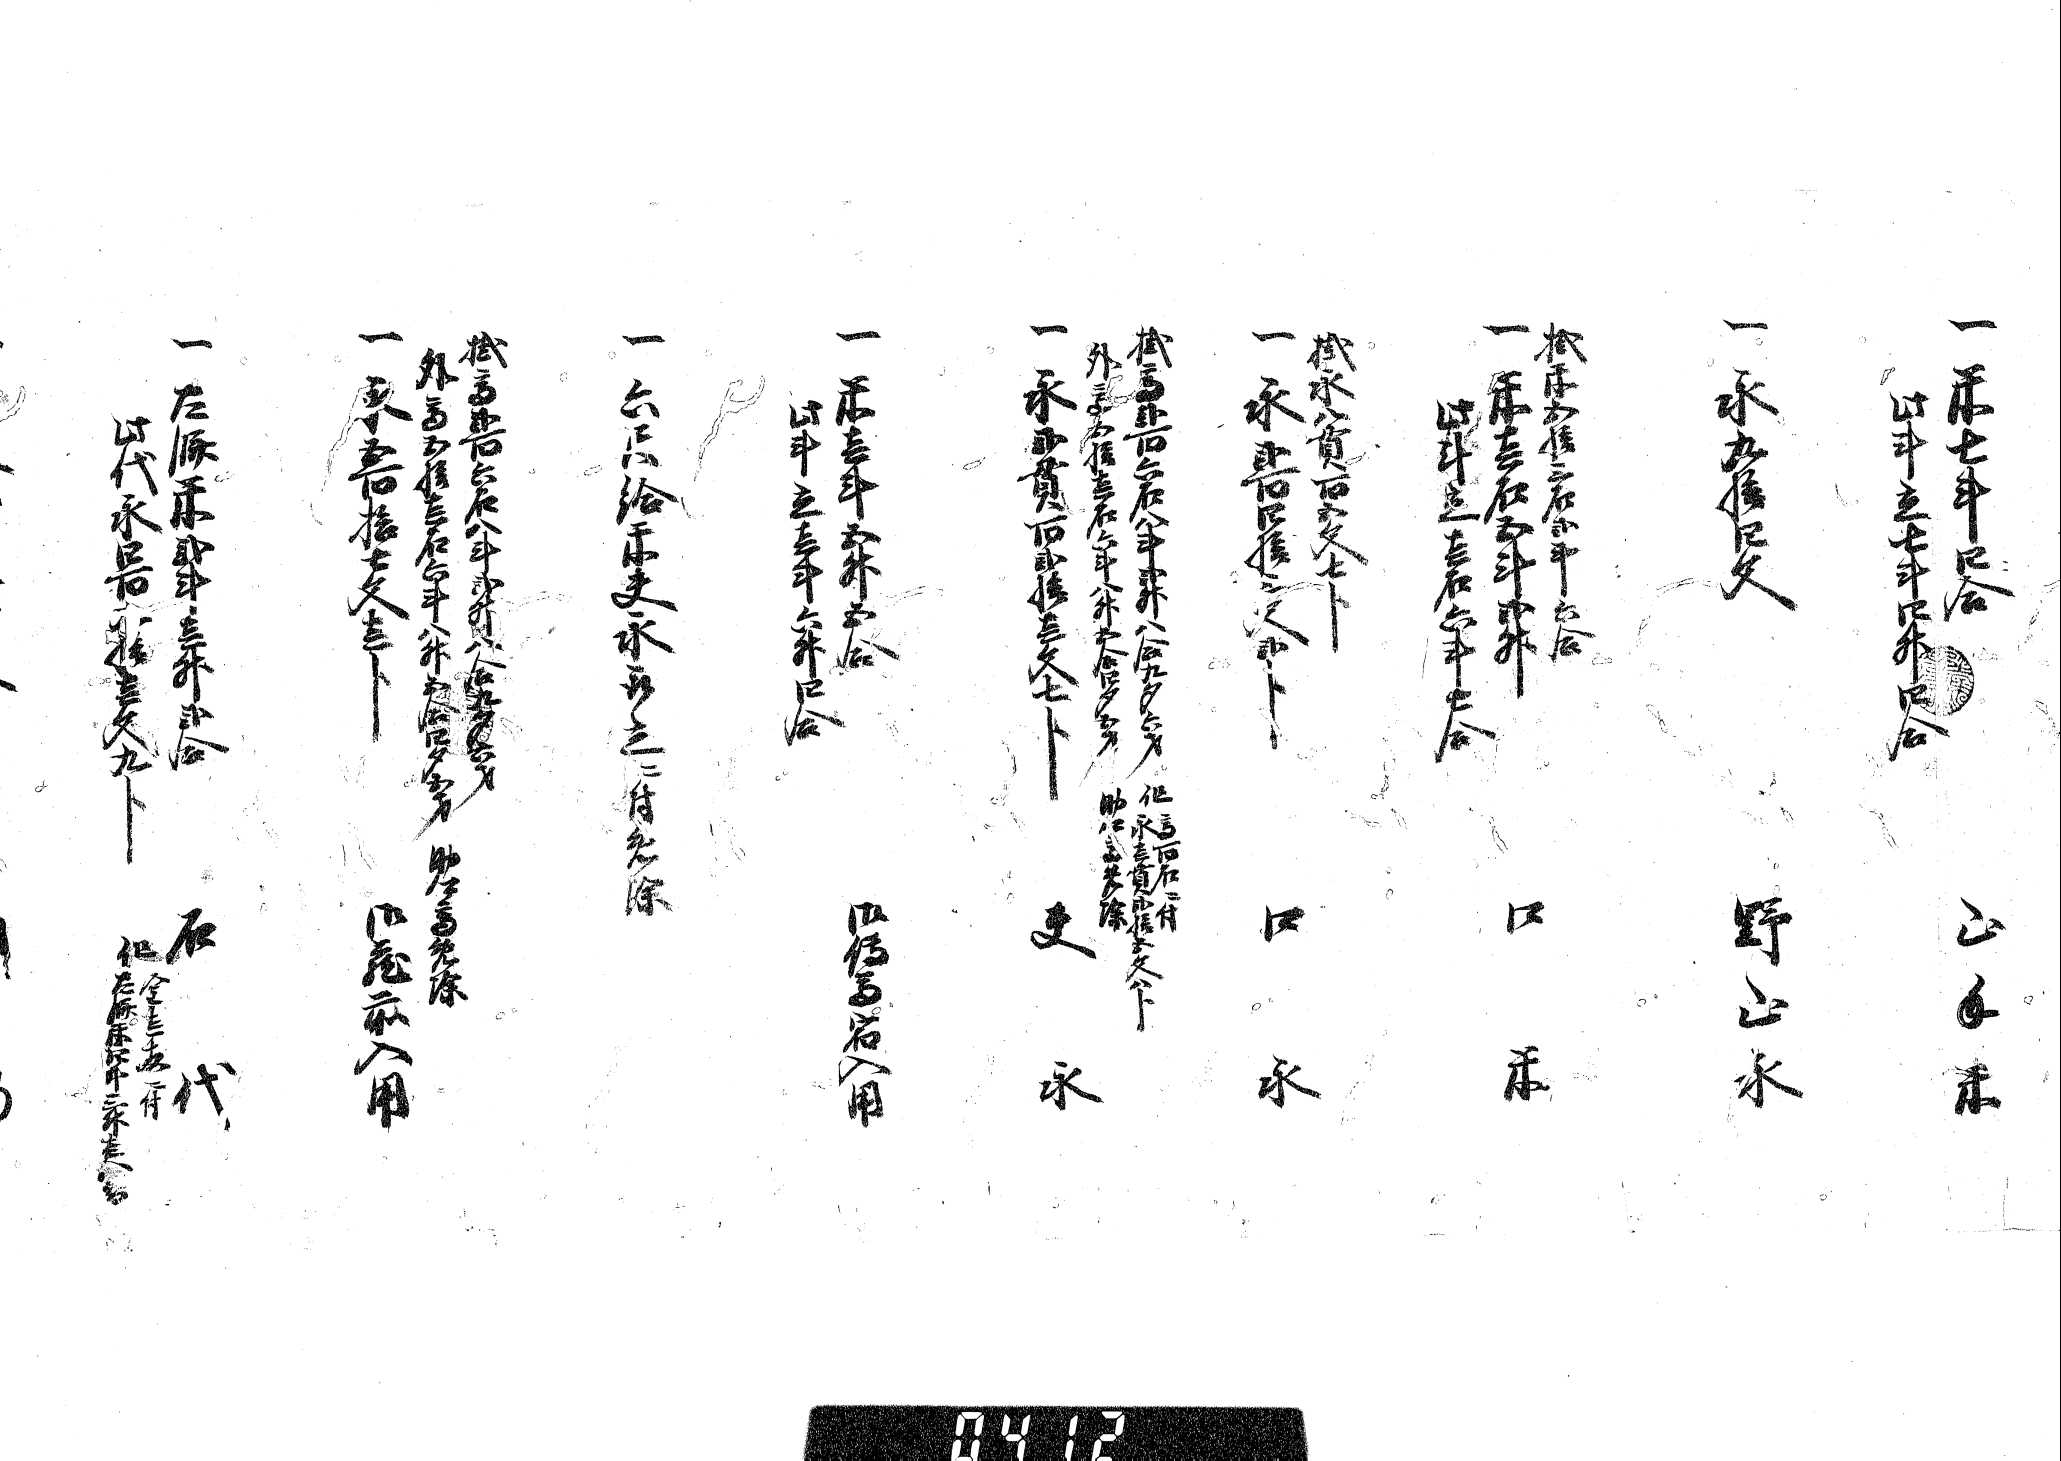 一米七斗四合 山手米
此斗立七斗四升四合
一永九拾四文 野山永
掛米五拾三石弐斗六合
一米壱石五斗弐升 口米
此斗立壱石六斗七合
掛永八貫百五文七卜
一永弐百四拾三文弐卜 口永
掛高弐百六石八斗弐升八合九夕六才 但高百石ニ付
永壱貫弐拾五文八卜
外高五拾壱石六斗八升五合四夕五才 助郷高免除
一永弐貫百弐拾壱文七卜 夫永
一米壱斗五升五合 御伝馬宿入用
此斗立壱斗六升四合
一六尺給米夫永取立ニ付免除
掛高弐百六石八斗弐升八合九夕六才
外高五拾壱石六斗八升五合四夕五才 助郷高免除
一永五百拾七文壱卜 御蔵前入用
一大豚米弐斗壱升弐合 石代
此代永四百八拾壱文九卜 但
金壱両ニ付